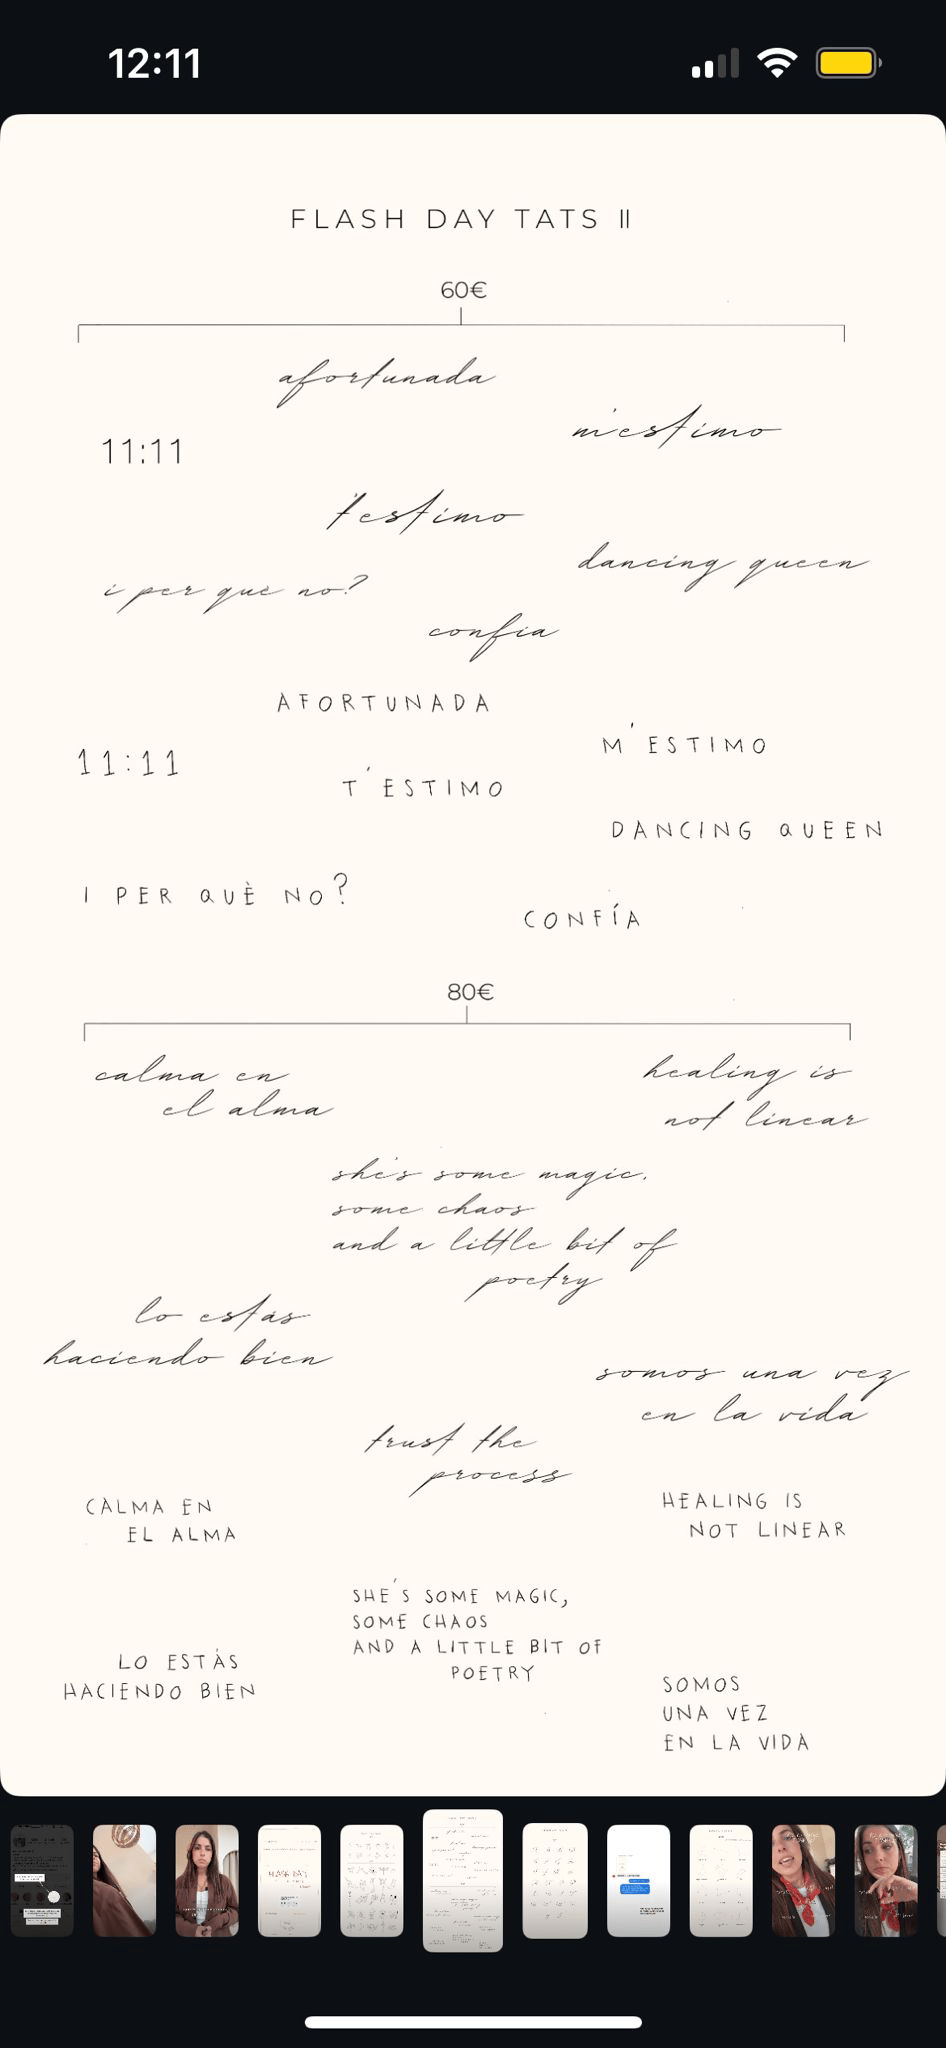 12:11
FLASH DAY TATS II
60€
afortunada
m'estimo
11:11
t'estimo
dancing queen
i per què no?
confía
AFORTUNADA
M'ESTIMO
11:11
T'ESTIMO
DANCING QUEEN
I PER QUÈ NO?
CONFÍA
80€
calma en
el alma
healing is
not linear
she's some magic,
some chaos
and a little bit of
poetry
lo estás
haciendo bien
somos una vez
en la vida
trust the
process
CALMA EN
EL ALMA
HEALING IS
NOT LINEAR
SHE'S SOME MAGIC,
SOME CHAOS
AND A LITTLE BIT OF
POETRY
LO ESTÁS
HACIENDO BIEN
SOMOS
UNA VEZ
EN LA VIDA